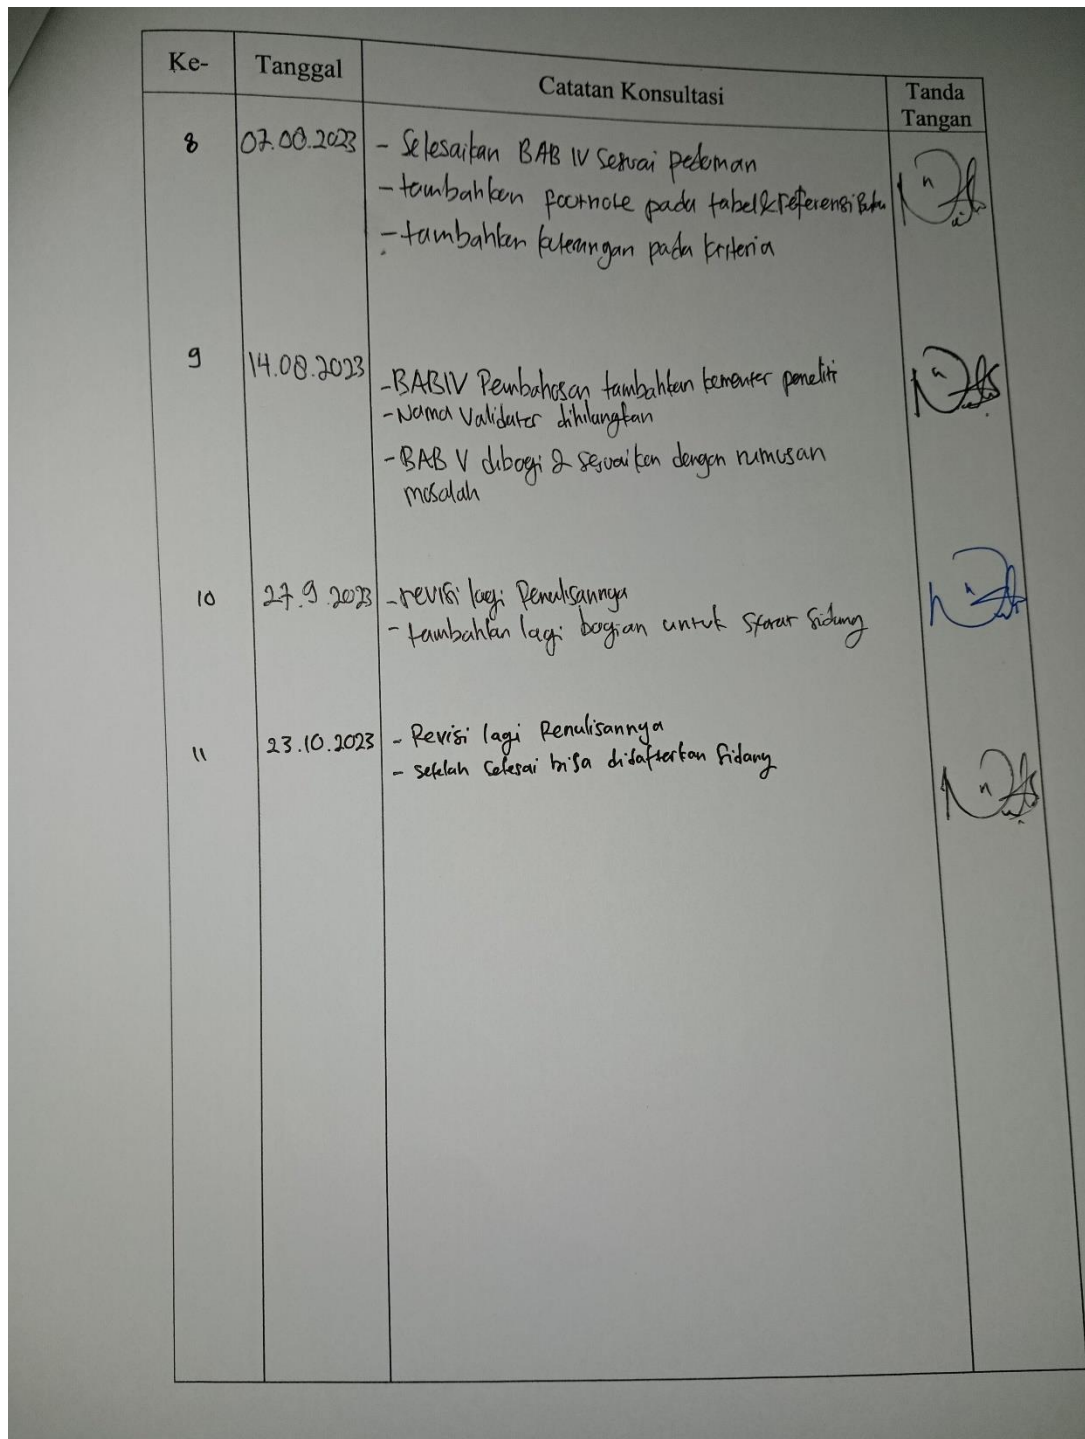 Ke- Tanggal Catatan Konsultasi Tanda
Tangan
8 07.08.2023 - Selesaikan BAB IV Sesuai pedoman
- tambahkan footnote pada tabel & referensi Buku
- tambahkan keterangan pada kriteria
9 14.08.2023 - BAB IV Pembahasan tambahkan komenter peneliti
- Nama Validator dihilangkan
- BAB V dibagi 2 sesuaikan dengan rumusan
masalah
10 27.9.2023 - revisi lagi Penulisannya
- tambahkan lagi bagian untuk syarat Sidang
11 23.10.2023 - Revisi lagi Penulisannya
- setelah selesai bisa didafterkan Sidang